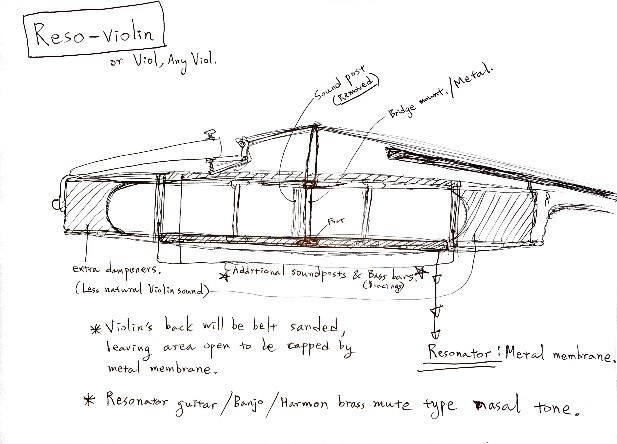 Reso-violin
or Viol, Any Viol.
Sound post
(Removed)
Bridge mount./Metal.
Foot
extra dampeners.
(Less natural Violin sound)
*Additional soundposts & Bass bars.*
(Bracings)
* Violin's back will be belt sanded,
leaving area open to be capped by
metal membrane.
Resonator: Metal membrane.
* Resonator guitar/Banjo/Harmon brass mute type nasal tone.